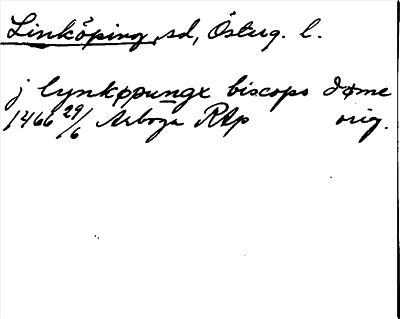 Linköping, sd, Österg. l.
j lynkøpungx biscops døme
1466 29/6 Arboga RAp orig.